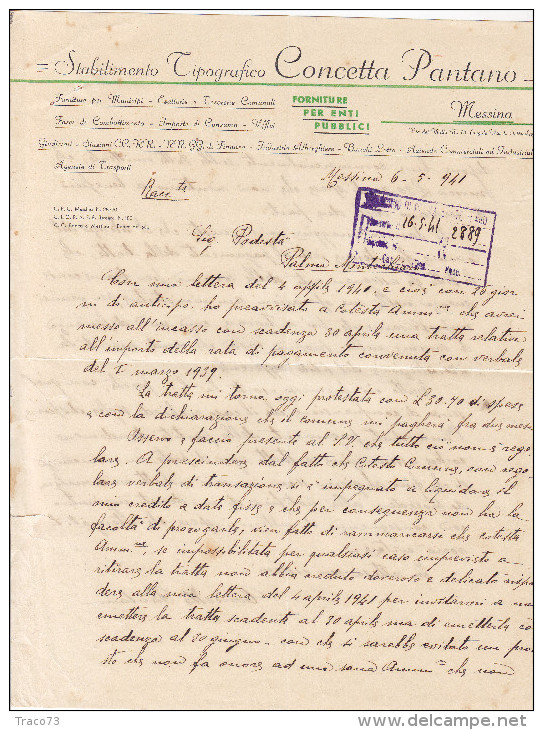 Stabilimento Tipografico Concetta Pantano
Forniture per Municipi - Esattorie - Tesorerie Comunali
FORNITURE
PER ENTI
PUBBLICI
Messina
Case di Combattimento - Imposte di Consumo - Uffici
Giudiziari
Agenzia di Trasporti
Racc.ta
Messina 6-5-941
16.5.41 2889
Sig. Podestà
Palma Montechiaro
Con mia lettera del 4 aprile 1940, e cioè con 20 gior
ni di anticipo, ho preavvisato a Cotesta Amm. che avrei
messo all'incasso con scadenza 30 aprile una tratta relativa
all'importo della rata di pagamento convenuta con verbale
del 1° marzo 1939.
La tratta mi torna oggi protestata con L 30.70 di spese
e con la dichiarazione che il comune mi pagherà fra due mesi
Osservo e faccio presente al S.V. che tutto ciò non è rego
lare. A prescindere dal fatto che Cotesto Comune, con rego
lare verbale di transazione si è impegnato a liquidare il
mio credito a date fisse e che per conseguenza non ha la
facoltà di prorogarle, vien fatto di rammaricarsi che cotesta
Amm.ne, se impossibilitata per qualsiasi caso imprevisto a
ritirare la tratta non abbia creduto doveroso e delicato rispon
dere alla mia lettera del 4 aprile 1941 per invitarmi a non
emettere la tratta scadente al 30 aprile ma di emetterla con
scadenza al 30 giugno - con che si sarebbe evitato un prote
sto che non fa onore ad una sana Amm.ne che non
Traco73
delcampe.net